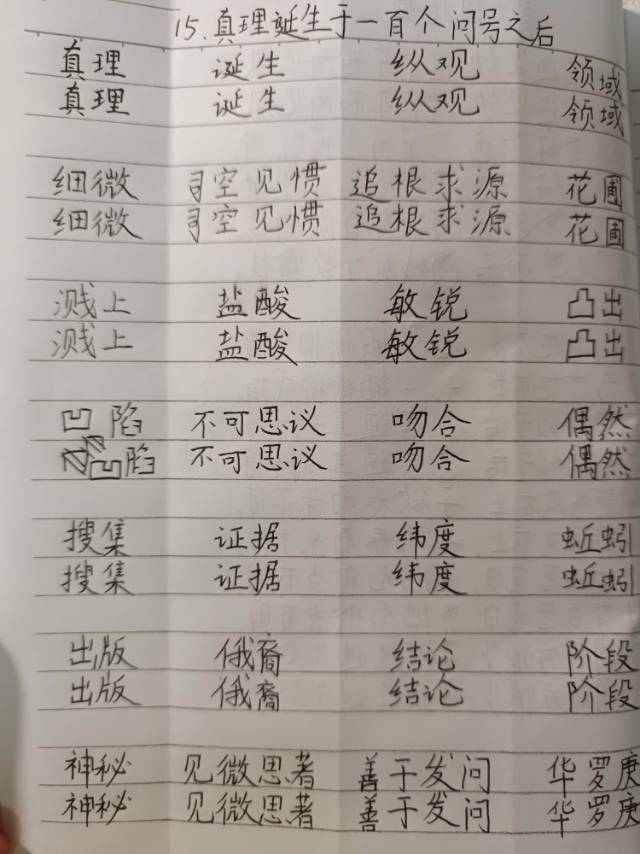 15.真理诞生于一百个问号之后
真理 诞生 纵观 领域
真理 诞生 纵观 领域
细微 司空见惯 追根求源 花圃
细微 司空见惯 追根求源 花圃
溅上 盐酸 敏锐 凸出
溅上 盐酸 敏锐 凸出
凹陷 不可思议 吻合 偶然
凹陷 不可思议 吻合 偶然
搜集 证据 纬度 蚯蚓
搜集 证据 纬度 蚯蚓
出版 俄裔 结论 阶段
出版 俄裔 结论 阶段
神秘 见微思著 善于发问 华罗庚
神秘 见微思著 善于发问 华罗庚